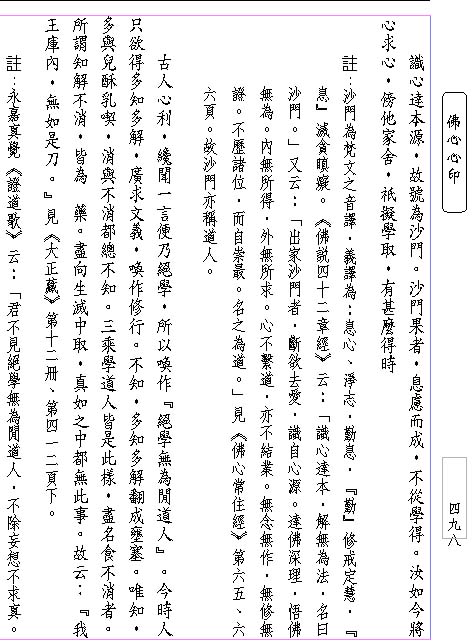 佛心心印
四九八
識心達本源，故號為沙門。沙門果者，息慮而成，不從學得。汝如今將
心求心，傍他家舍，祇擬學取，有甚麼得時
註：沙門為梵文之音譯，義譯為：息心、淨志，勤息，『勤』修戒定慧，『
息』滅貪瞋癡。《佛說四十二章經》云：「識心達本，解無為法，名曰
沙門。」又云：「出家沙門者，斷欲去愛，識自心源。達佛深理，悟佛
無為。內無所得，外無所求。心不繫道，亦不結業。無念無作，無修無
證。不歷諸位，而自崇最。名之為道。」見《佛心常住經》第六五、六
六頁。故沙門亦稱道人。
古人心利，纔聞一言便乃絕學，所以喚作『絕學無為閒道人』。今時人
只欲得多知多解，廣求文義，喚作修行。不知，多知多解翻成壅塞。唯知，
多與兒酥乳喫，消與不消都總不知。三乘學道人皆是此樣，盡名食不消者。
所謂知解不消，皆為　藥。盡向生滅中取，真如之中都無此事。故云：『我
王庫內，無如是刀。』見《大正藏》第十二冊、第四一二頁下。
註：永嘉真覺《證道歌》云：「君不見絕學無為閒道人，不除妄想不求真。